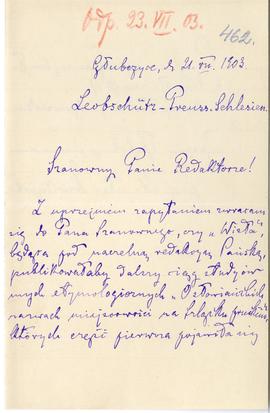 Odp. 23. VII. 03.
462.
Głubczyce, d. 21. VII. 1903.
Leobschütz - Preuss. Schlesien.
Szanowny Panie Redaktorze!
Z uprzejmem zapytaniem zwracam
się do Pana Szanownego, czy „Wisła",
będąca pod naczelną redakcyą Pańską,
publikowałaby dalszy ciąg studyów
mych etymologicznych „O słowiańskich
nazwach miejscowości na Szląsku pruskim",
których część pierwsza pojawiła się